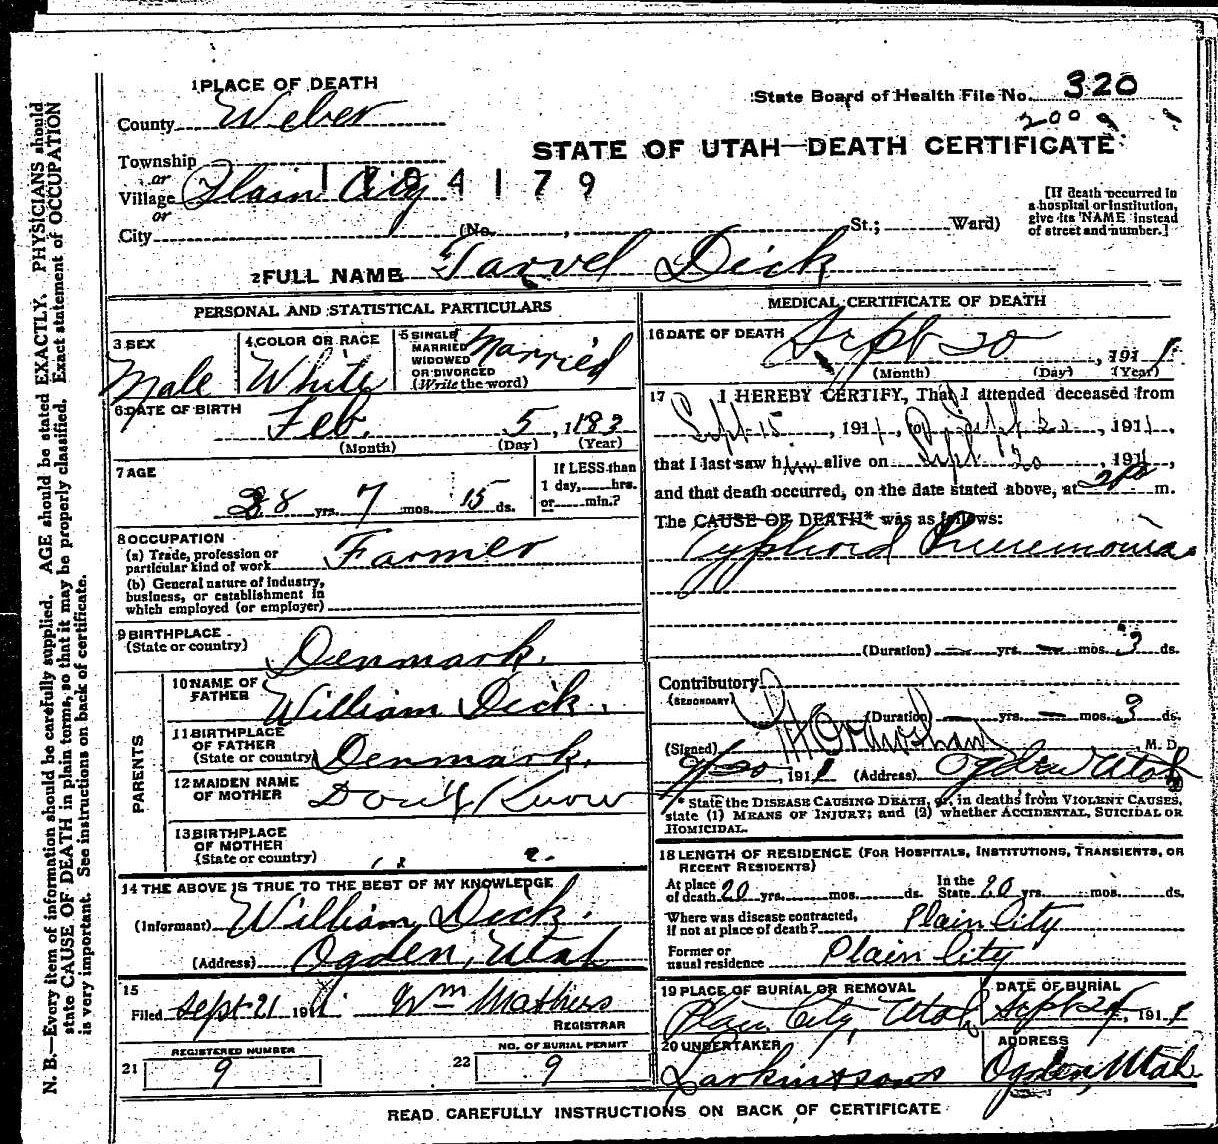 1 PLACE OF DEATH
County Weber
State Board of Health File No. 320
2009
STATE OF UTAH—DEATH CERTIFICATE
Township
or
Village Plain City
1104179
or
City (No. , St.; Ward)
[If death occurred in
a hospital or institution,
give its NAME instead
of street and number.]
2 FULL NAME Tarvel Dick
PERSONAL AND STATISTICAL PARTICULARS
3 SEX
Male
4 COLOR OR RACE
White
5 SINGLE
MARRIED
WIDOWED
OR DIVORCED
(Write the word)
Married
6 DATE OF BIRTH
Feb. 5, 1883
(Month) (Day) (Year)
7 AGE
28 yrs. 7 mos. 15 ds.
If LESS than
1 day, hrs.
or min.?
8 OCCUPATION
(a) Trade, profession or
particular kind of work Farmer
(b) General nature of industry,
business, or establishment in
which employed (or employer)
9 BIRTHPLACE
(State or country)
Denmark.
PARENTS
10 NAME OF
FATHER
William Dick.
11 BIRTHPLACE
OF FATHER
(State or country)
Denmark.
12 MAIDEN NAME
OF MOTHER
Don't Know
13 BIRTHPLACE
OF MOTHER
(State or country)
14 THE ABOVE IS TRUE TO THE BEST OF MY KNOWLEDGE
(Informant) William Dick.
(Address) Ogden, Utah
15
Filed Sept 21 1911. Wm Mathers
REGISTRAR
REGISTERED NUMBER
21 9
NO. OF BURIAL PERMIT
22 9
MEDICAL CERTIFICATE OF DEATH
16 DATE OF DEATH
Sept 20, 1911
(Month) (Day) (Year)
17 I HEREBY CERTIFY, That I attended deceased from
Sept 15, 1911, to Sept 20, 1911,
that I last saw him alive on Sept 20, 1911,
and that death occurred, on the date stated above, at m.
The CAUSE OF DEATH* was as follows:
Typhoid Pneumonia
(Duration) — yrs. — mos. 3 ds.
Contributory
(SECONDARY)
(Duration) — yrs. — mos. 3 ds.
(Signed) M. D.
9/20, 1911 (Address) Ogden Utah
* State the DISEASE CAUSING DEATH, or, in deaths from VIOLENT CAUSES,
state (1) MEANS OF INJURY; and (2) whether ACCIDENTAL, SUICIDAL OR
HOMICIDAL.
18 LENGTH OF RESIDENCE (FOR HOSPITALS, INSTITUTIONS, TRANSIENTS, OR
RECENT RESIDENTS)
At place
of death 20 yrs. mos. ds.
In the
State 20 yrs. mos. ds.
Where was disease contracted,
if not at place of death? Plain City
Former or
usual residence Plain City
19 PLACE OF BURIAL OR REMOVAL
Plain City, Utah
DATE OF BURIAL
Sept 24, 1911
20 UNDERTAKER
Larkin & sons
ADDRESS
Ogden, Utah
READ CAREFULLY INSTRUCTIONS ON BACK OF CERTIFICATE
N. B.—Every item of information should be carefully supplied. AGE should be stated EXACTLY. PHYSICIANS should
state CAUSE OF DEATH in plain terms, so that it may be properly classified. Exact statement of OCCUPATION
is very important. See instructions on back of certificate.